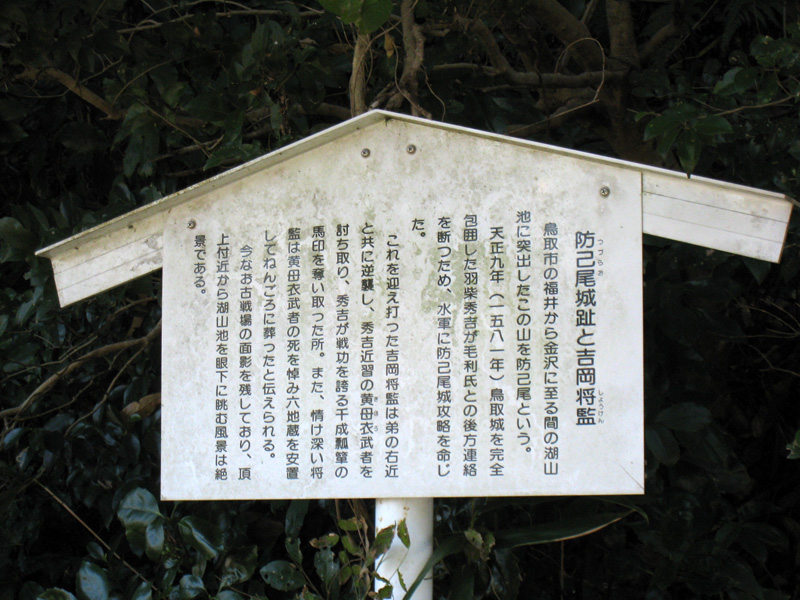 防己尾城趾と吉岡将監
つづらお
しょうげん
鳥取市の福井から金沢に至る間の湖山
池に突出したこの山を防己尾という。
天正九年(一五八一年)鳥取城を完全
包囲した羽柴秀吉が毛利氏との後方連絡
を断つため、水軍に防己尾城攻略を命じ
た。
これを迎え打った吉岡将監は弟の右近
と共に逆襲し、秀吉近習の黄母衣武者を
討ち取り、秀吉が戦功を誇る千成瓢箪の
馬印を奪い取った所。また、情け深い将
監は黄母衣武者の死を悼み六地蔵を安置
してねんごろに葬ったと伝えられる。
今なお古戦場の面影を残しており、頂
上付近から湖山池を眼下に眺む風景は絶
景である。